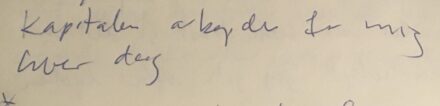 Kapitalen arbejder for mig
hver dag